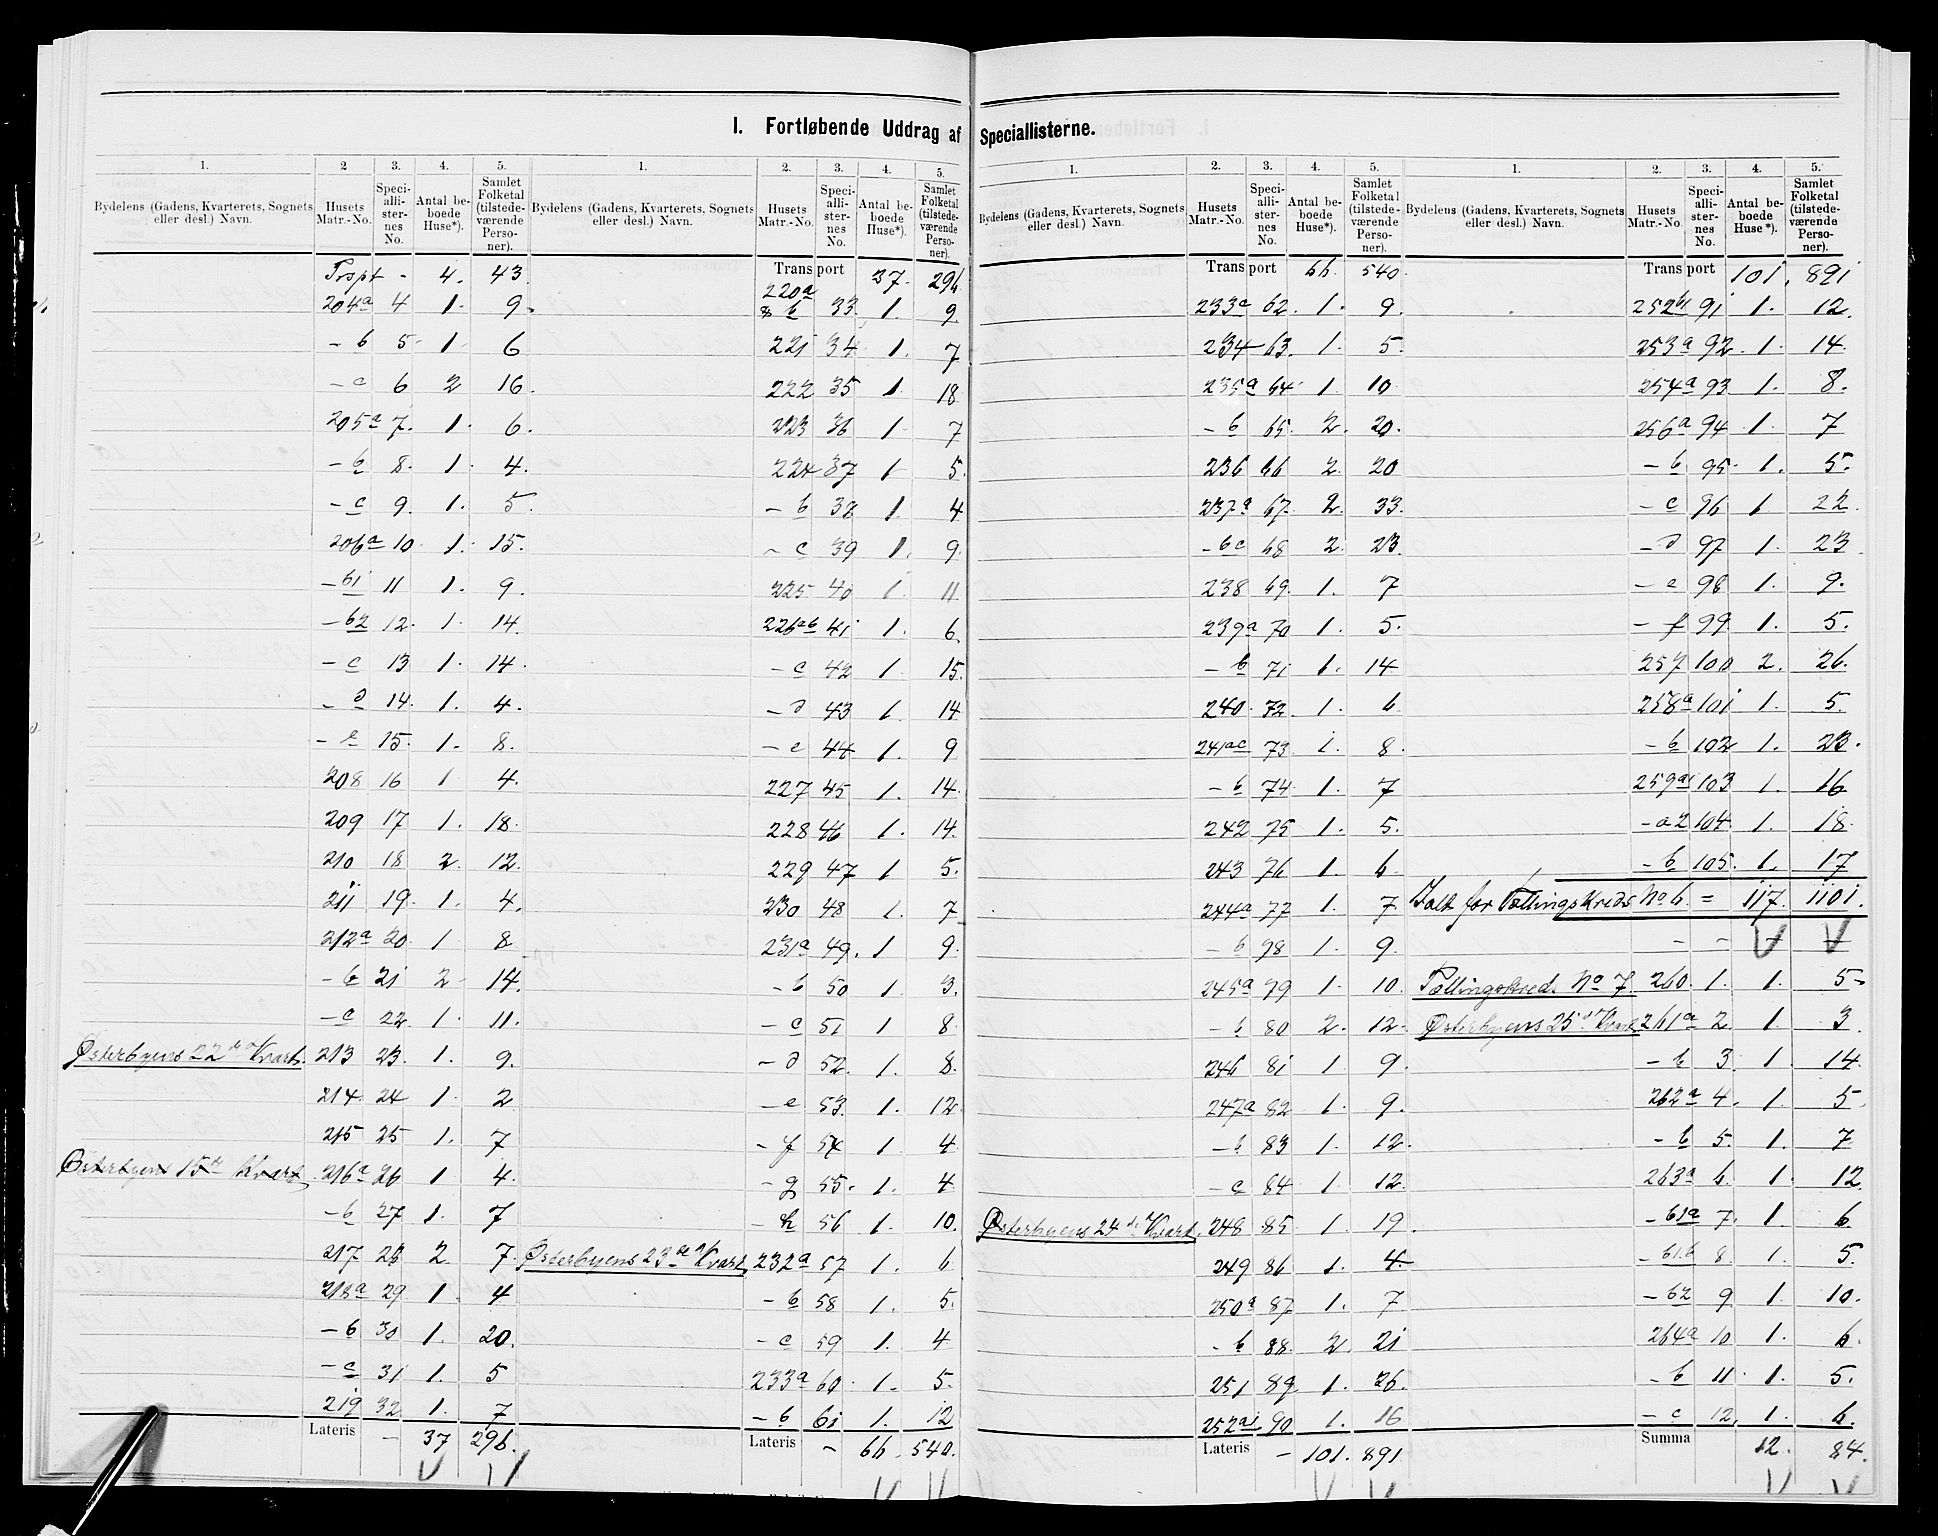 I. Fortløbende Uddrag af Speciallisterne.
1. 2 3. 4. 5.
Bydelens (Gadens, Kvarterets, Sognets eller desl.) Navn. Husets Matr.-No. Speciallisternes No. Antal beboede Huse*). Samlet Folketal (tilstedeværende Personer).
Trspt - 4. 43
204a 4 1. 9.
- b 5 1 6
- c 6 2 16.
205a 7. 1. 6.
- b 8. 1. 4.
- c 9. 1. 5.
206a 10. 1. 15.
- b1 11 1. 9.
- b2 12. 1. 14.
- c 13 1. 14.
- d 14. 1. 4.
- e 15. 1. 8.
208 16 1 4.
209 17 1. 18.
210 18 2. 12.
211 19. 1. 4.
212a 20. 1 8
- b 21 2 14.
- c 22. 1. 11.
Østerbyens 22de Kvart. 213 23. 1. 9.
214 24 1. 2
215 25 1. 7
Østerbyens 15de Kvart. 216a 26 1 4.
- b 27 1. 7
217 28 2. 7.
218a 29 1. 4
- b 30 1. 20.
- c 31 1. 5
219 32 1. 7
Lateris - 37 296.
1. 2. 3. 4. 5.
Bydelens (Gadens, Kvarterets, Sognets eller desl.) Navn. Husets Matr.-No. Speciallisternes No. Antal beboede Huse*). Samlet Folketal (tilstedeværende Personer).
Transport 37. 296
220a
& b 33 1. 9
221 34 1. 7
222 35 1. 18
223 36 1 7
224 37 1 5.
- b 38 1. 4
- c 39 1. 9.
225 40 1 11
226ab 41 1. 6.
- c 42 1. 15.
- d 43 1. 14
- e 44 1. 9
227 45 1. 14.
228 46 1. 14.
229 47 1 5.
230 48 1. 7
231a 49. 1 9.
- b 50 1 3.
- c 51 1 8.
- d 52. 1. 8.
- e 53. 1. 12.
- f 54 1 4
- g 55. 1. 4
- h 56 1. 10.
Østerbyens 23de Kvart. 232a 57 1. 6
- b 58 1. 5.
- c 59 1. 4
233a 60. 1. 5.
- b 61 1. 12
Lateris - 66. 540.
1. 2. 3. 4. 5.
Bydelens (Gadens, Kvarterets, Sognets eller desl.) Navn. Husets Matr.-No. Speciallisternes No. Antal beboede Huse*). Samlet Folketal (tilstedeværende Personer).
Transport 66. 540.
233a 62. 1. 9.
234 63. 1. 5.
235a 64. 1 10
- b 65. 2. 20.
236 66 2. 20
237a 67. 2. 33.
- bc 68 2. 23.
238 69. 1. 7
239a 70 1. 5.
- b 71 1. 14
240. 72. 1. 6
241ac 73. 1. 8.
- b 74 1. 7
242 75 1. 5.
243 76 1. 6
244a 77 1. 7
- b 98 1. 9.
245a 79 1. 10.
- b 80 2. 12.
246 81 1 9.
247a 82 1. 9.
- b 83 1. 12.
- c 84 1. 12.
Østerbyens 24de Kvart. 248 85. 1. 19.
249 86 1. 4
250a 87 1. 7
- b 88. 2. 21
251 89 1. 26.
252a1 90 1. 16
Lateris - 101. 891
1. 2. 3. 4. 5.
Bydelens (Gadens, Kvarterets, Sognets eller desl.) Navn. Husets Matr.-No. Speciallisternes No. Antal beboede Huse*). Samlet Folketal (tilstedeværende Personer).
Transport 101. 891
252b1 91 1. 12.
253a 92. 1. 14.
254a 93 1. 8.
256a 94 1. 7
- b 95. 1. 5.
- c 96 1 22.
- d 97 1. 23
- e 98 1. 9.
- f 99 1. 5.
257 100 2. 26.
258a 101 1. 5.
- b 102 1. 23.
259a1 103 1. 16
- a2 104. 1. 18.
- b 105. 1. 17
Ialt for Tællingskreds No 6. = 117. 1101.
- -
Tællingskreds No 7. 260. 1. 1. 5
Østerbyens 25de Kvart. 261a 2. 1. 3.
- b 3. 1. 14.
262a 4. 1. 5
- b 5. 1. 7
263a 6. 1. 12
- b1a 7. 1. 6
- b1b 8. 1. 5.
- b2 9. 1. 10.
264a 10 1. 6.
- b 11. 1. 5.
- c 12. 1. 6.
Summa 12. 84.